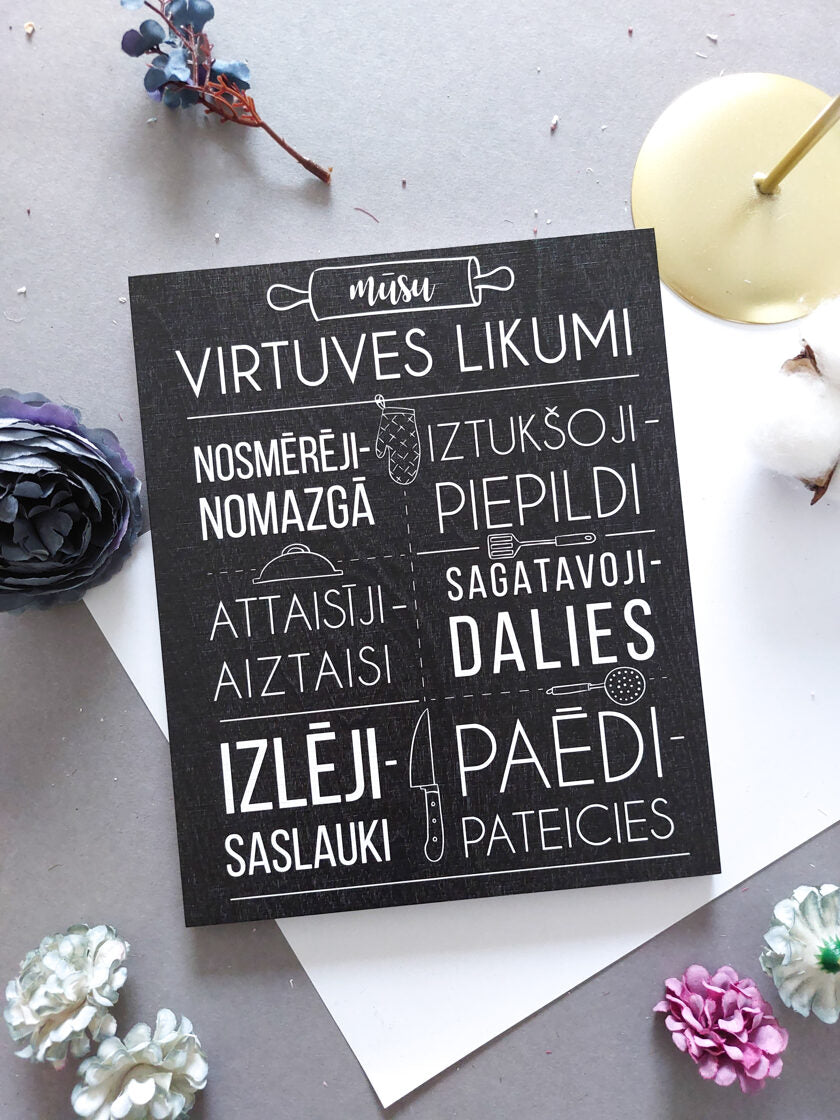 mūsu
VIRTUVES LIKUMI
NOSMĒRĒJI-
NOMAZGĀ
IZTUKŠOJI-
PIEPILDI
ATTAISĪJI-
AIZTAISI
SAGATAVOJI-
DALIES
IZLĒJI-
SASLAUKI
PAĒDI-
PATEICIES